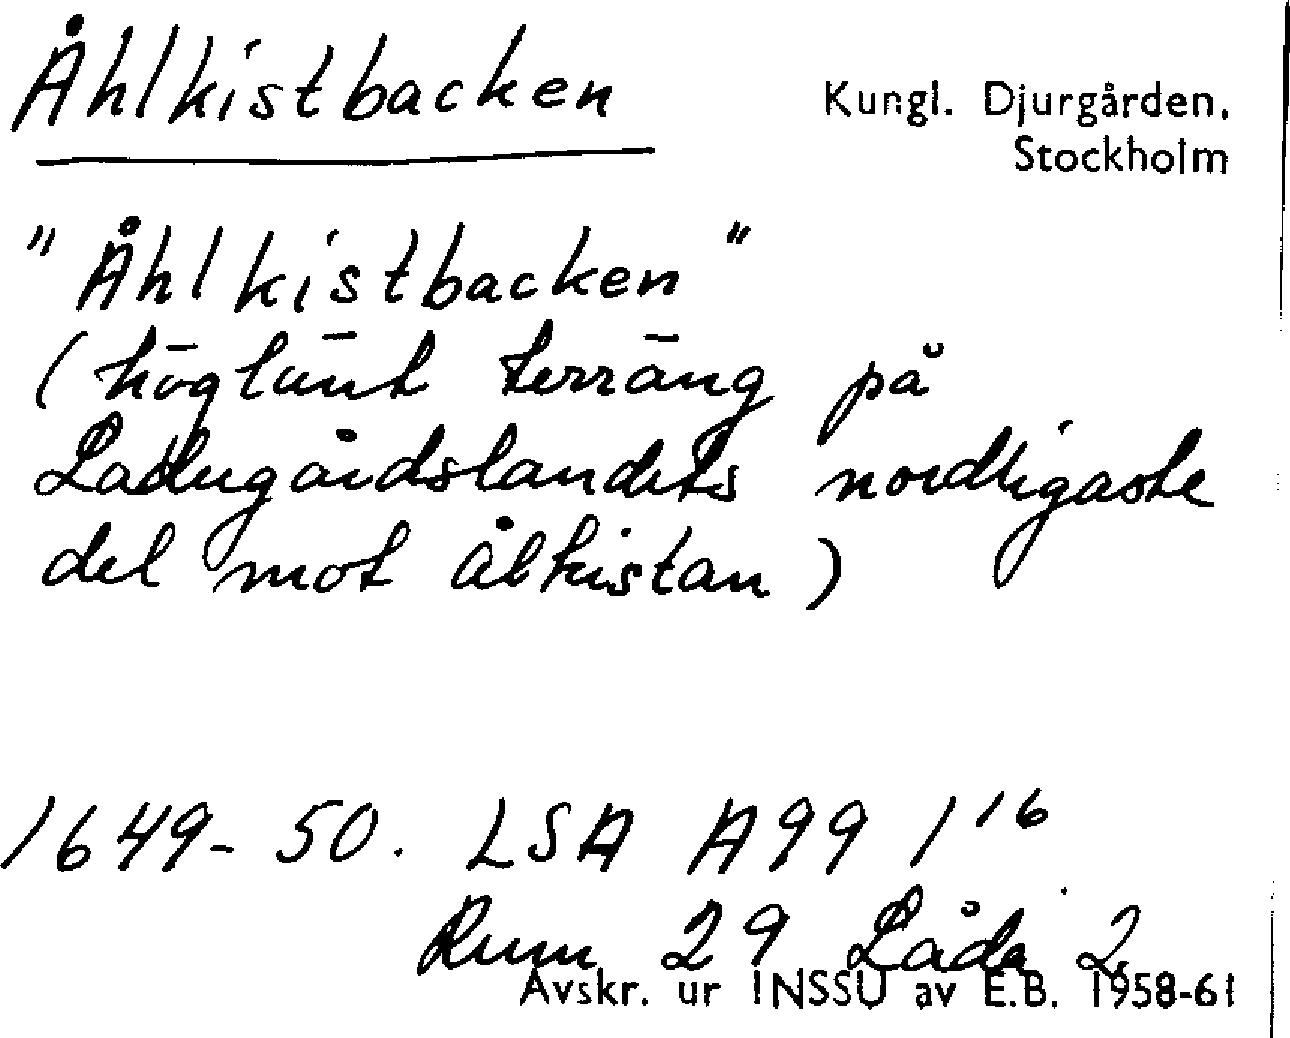 Åhlkistbacken
Kungl. Djurgården,
Stockholm
"Åhlkistbacken"
(höglänt terräng på
Ladugårdslandets nordligaste
del mot ålkistan)
1649-50. LSA A99 1¹⁶
Rum 29 Låda 2
Avskr. ur INSSU av E.B. 1958-61